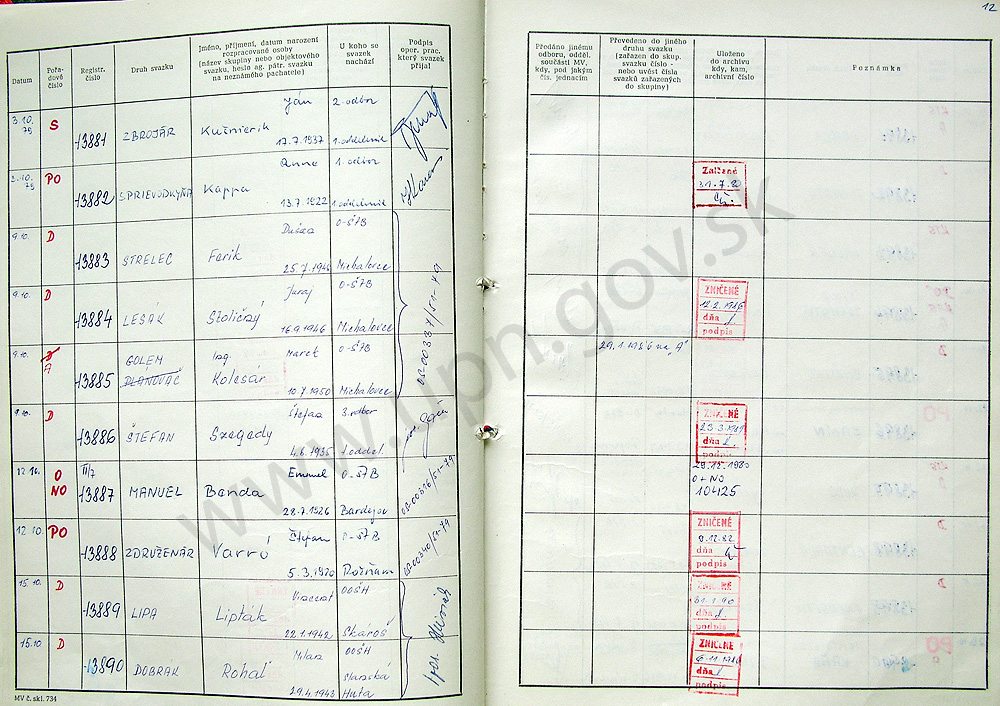 12
Datum
Pořadové číslo
Registr. číslo
Druh svazku
Jméno, příjmení, datum narození rozpracované osoby (název skupiny nebo objektového svazku, heslo ag. pátr. svazku na neznámého pachatele)
U koho se svazek nachází
Podpis oper. prac. který svazek přijal
Předáno jinému odboru, odděl. součásti MV, kdy, pod jakým čís. jednacím
Převedeno do jiného druhu svazku (zařazen do skup. svazku číslo - nebo uvést čísla svazků zařazených do skupiny)
Uloženo do archivu kdy, kam, archivní číslo
Poznámka
3.10. 79 S 13881 ZBROJÁR Ján 2. odbor
17.7.1937
3.10. 79 PO 13882 SPRIEVODKYŇA Kappa 1. odbor
13.7.1922
Zničené
31.7.80
9.10. D 13883 STRELEC Ferik O-ŠTB
25.7.194 Michalovce
9.10. D 13884 LESÁK Juraj O-ŠTB
16.9.1946 Michalovce
ZNIČENÉ
12.2.1986
dňa
podpis
9.10. A 13885 GOLEM PLÁNOVAČ Ing. Marek Kolesár O-ŠTB
10.7.1950 Michalovce
29.1.1986 na "A"
9.10. D 13886 ŠTEFAN Štefan Szegedy 3. odbor
4.6.1935 1. oddel.
ZNIČENÉ
dňa
podpis
12.10. O NO III/7 13887 MANUEL Banda O-ŠTB
28.7.1926 Bardejov
29.12.1980
O + NO
104125
12.10 PO 13888 ZDRUŽENÁR Štefan Varró O-ŠTB
5.3.1920 Rožňava
ZNIČENÉ
8.12.82
dňa
podpis
15.10. D 13889 LIPA Vincent Lipták OOŠH
22.1.1942 Skároš
ZNIČENÉ
31.1.90
dňa
podpis
15.10 D 13890 DOBRAK Milan Rohaľ OOŠH
29.4.1943 Slanská Huta
ZNIČENÉ
dňa
podpis
MV č. skl. 734
www.upn.gov.sk